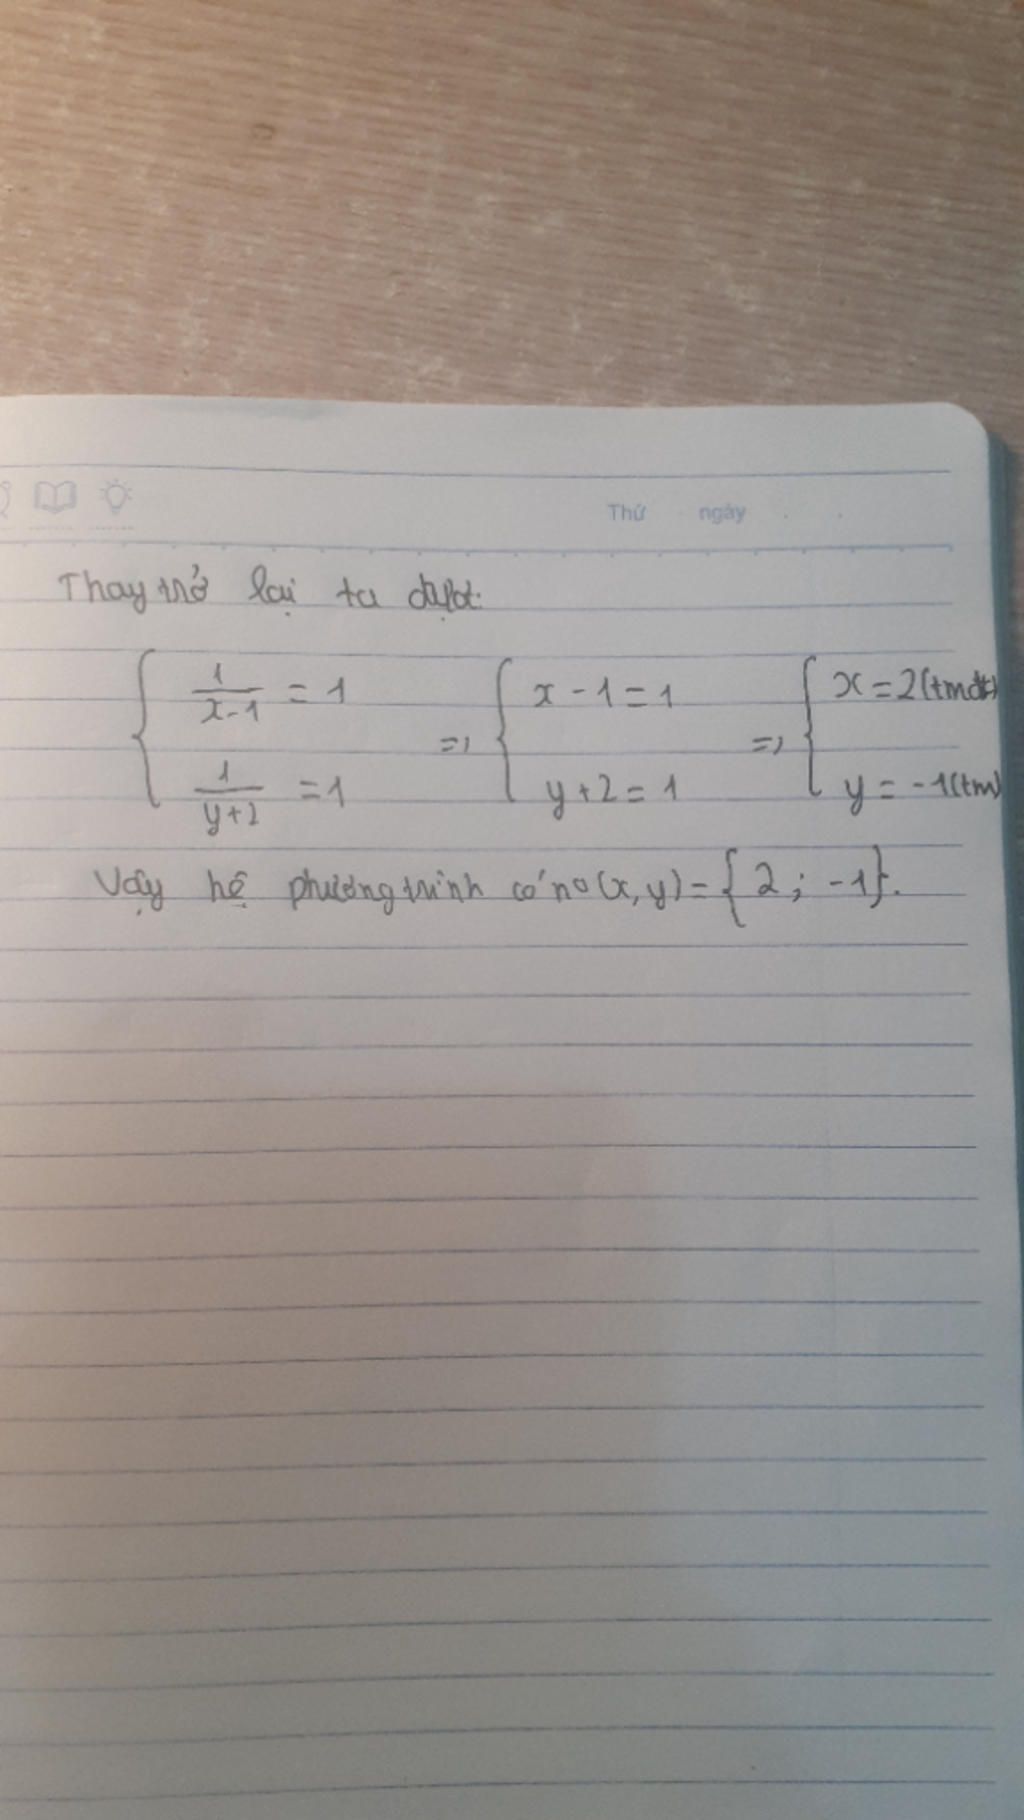 Thứ ngày
Thay trở lại ta được:
{ 1/(x-1) = 1 => { x - 1 = 1 => { x = 2 (tmđk)
{ 1/(y+2) = 1 { y + 2 = 1 { y = -1 (tm)
Vậy hệ phương trình có no (x, y) = {2 ; -1}.